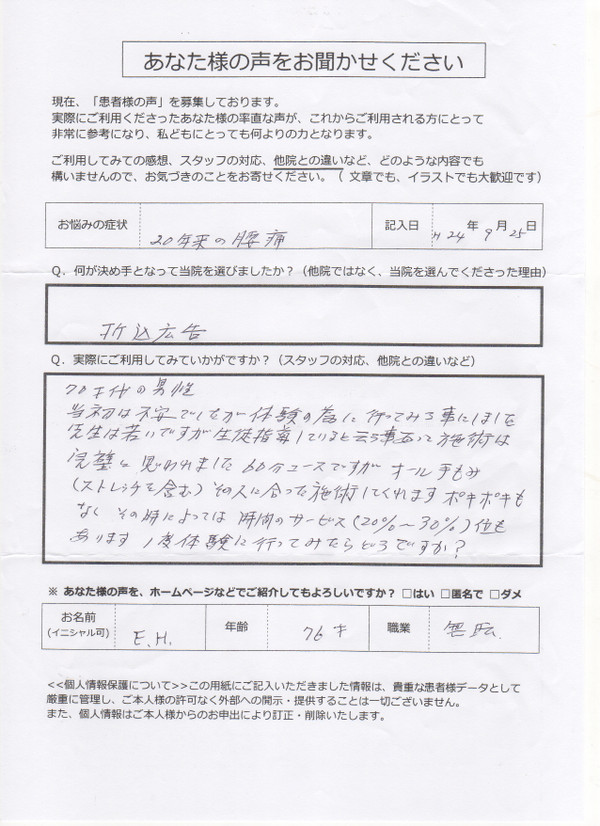 あなた様の声をお聞かせください
現在、「患者様の声」を募集しております。
実際にご利用くださったあなた様の率直な声が、これからご利用される方にとって
非常に参考になり、私どもにとっても何よりの力となります。
ご利用してみての感想、スタッフの対応、他院との違いなど、どのような内容でも
構いませんので、お気づきのことをお寄せください。（ 文章でも、イラストでも大歓迎です）
お悩みの症状 20年来の腰痛 記入日 H24年9月25日
Q．何が決め手となって当院を選びましたか？（他院ではなく、当院を選んでくださった理由）
折込広告
Q．実際にご利用してみていかがですか？（スタッフの対応、他院との違いなど）
70才代の男性
当初は不安でしたが体験の為に行ってみる事にしました
先生は若いですが生徒指導していると云う事もあって施術は
完璧と思われました 60分コースですがオール手もみ
(ストレッチを含む) その人に合った施術してくれます ポキポキも
なく その時によっては 時間のサービス(20%～30%)位も
あります 1度体験に行ってみたらどうですか?
※ あなた様の声を、ホームページなどでご紹介してもよろしいですか？ □はい □匿名で □ダメ
お名前 (イニシャル可) E.H. 年齢 76才 職業
<<個人情報保護について>>この用紙にご記入いただきました情報は、貴重な患者様データとして
厳重に管理し、ご本人様の許可なく外部への開示・提供することは一切ございません。
また、個人情報はご本人様からのお申出により訂正・削除いたします。